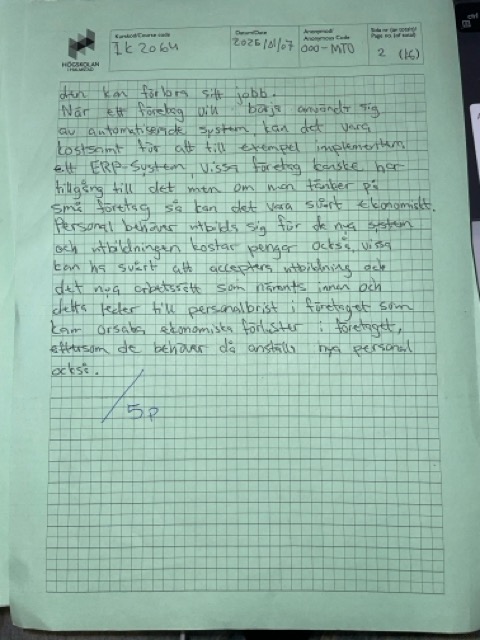 HÖGSKOLAN
I HALMSTAD
Kurskod/Course code
IK2064
Datum/Date
2026/01/07
Anonymkod/
Anonymous Code
000-MTO
Page no. (of total)
2 (16)
den kan förlora sitt jobb.
När ett företag vill börja använda sig
av automatiserade system, kan det vara
kostsamt för att till exempel implementera
ett ERP-System, vissa företag kanske har
tillgång till det men om man tänker på
små företag så kan det vara svårt ekonomiskt.
Personal behöver utbilda sig för de nya system
och utbildningen kostar pengar också, vissa
kan ha svårt att acceptera utbildning och
det nya arbetssätt som nämnts innan och
detta leder till personalbrist i företaget som
kan orsaka ekonomiska förluster i företaget,
eftersom de behöver då anställa nya personal
också.
5p